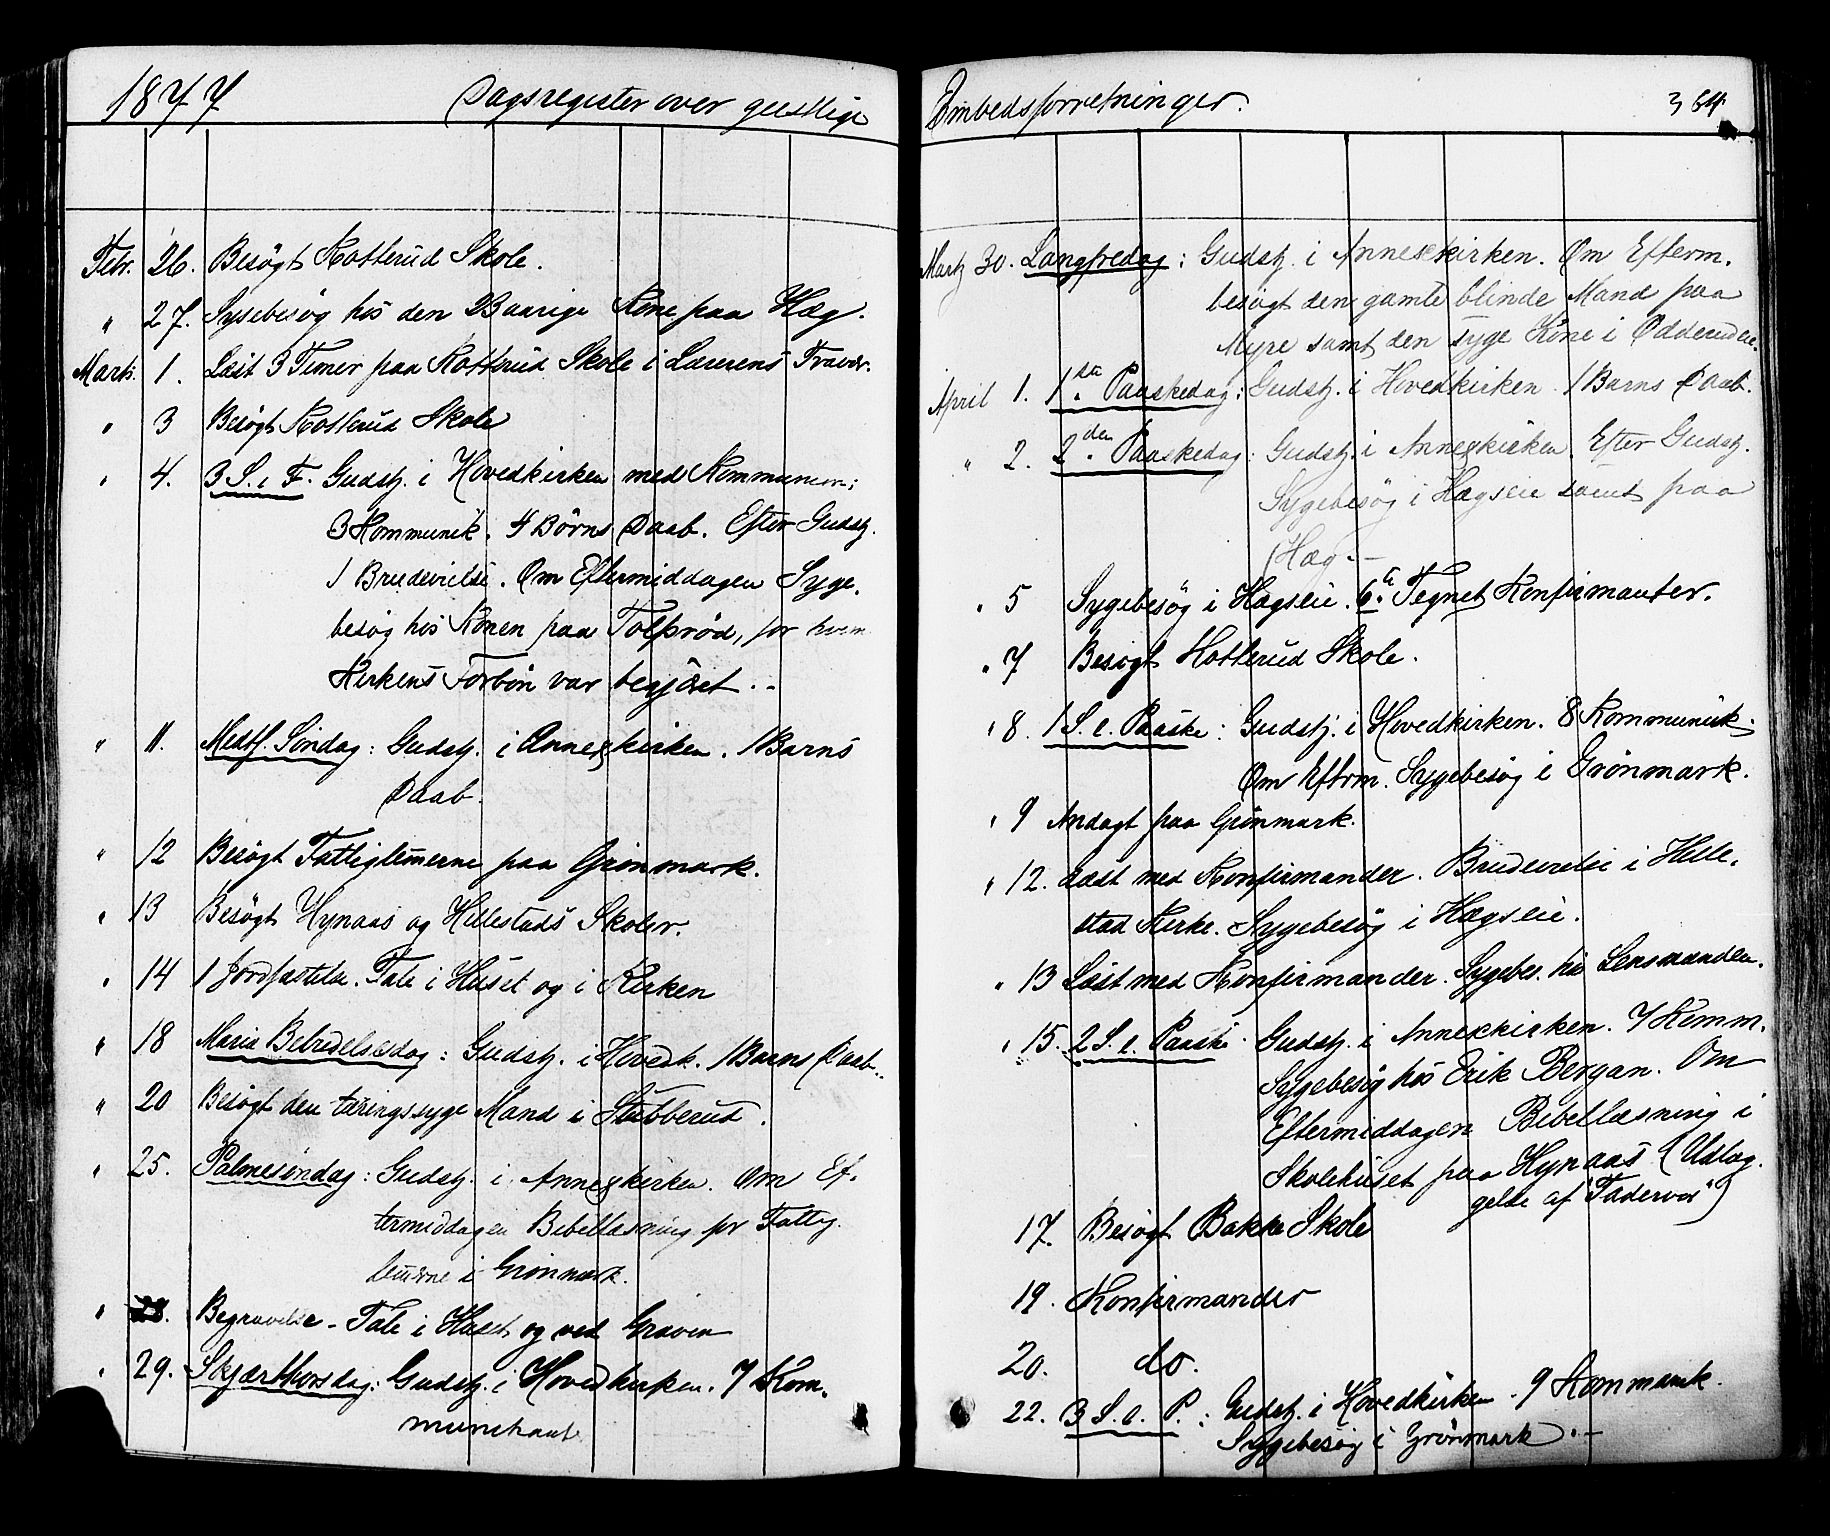 1877 Dagsregister over geistlige
Febr. 26. Besögt Kotterud Skole.
" 27. Sygebesög hos den Baarige Kone paa Hæg.
Marts. 1. Læst 3 Timer paa Kotterud Skole i Lærerens Fravær.
" 3 Besögt Kotterud Skole
" 4. 3 S. i F. Gudstj. i Hovedkirken med Kommunion:
3 Kommunik. 4 Börns Daab. Efter Gudstj.
1 Brudevielse. Om Eftermiddagen Syge,
besög hos Konen paa Tolfsrød, for hvem
Kirkens Forbön var begjært.-
" 11. Midtf. Söndag: Gudstj. i Annexkirken. 1 Barns
Daab.
" 12 Besögt Fattiglemerne paa Grönmark.
" 13 Besögt Hynaas og Hillestads Skoler.
" 14 1 Jordfæstelse. Tale i Huset og i Kirken
" 18 Maria Bebudelsesdag: Gudstj. i Hovedk. 1 Barns Daab.
" 20 Besögt den tæringssyge Mand i Stubberud.
" 25. Palmesöndag: Gudstj. i Annexkirken. Om Ef-
termiddagen Bibellæsning for Fattig-
lemerne i Grönmark.
" 28. Begravelse - Tale i Huset og ved Graven
" 29. Skjærthorsdag: Gudstj. i Hovedkirken. 7 Kom-
munikant
Embedsforretninger. 364
Marts 30. Langfredag: Gudstj. i Annexkirken. Om Efterm.
besøgt den gamle blinde Mand paa
Myre samt den syge Kone i Odderudeie.
April 1. 1ste Paaskedag: Gudstj. i Hovedkirken. 1 Barns Daab.
" 2. 2den Paaskedag: Gudstj. i Annexkirken. Efter Gudstj.
Sygebesög i Hægseie samt paa
Hæg.-
" 5 Sygebesög i Hægseie. Tegnet Konfirmanter.
" 7 Besögt Kotterud Skole.
" 8. 1 S. e. Paaske: Gudstj. i Hovedkirken. 8 Kommunik.
Om Efterm. Sygebesög i Grönmark.
" 9 Andagt paa Grönmark.
" 12. Læst med Konfirmander. Brudevielse i Hille-
stad Kirke. Sygebesög i Hægseie.
" 13 Læst med Konfirmander. Sygebes. hos Lensmanden.
" 15. 2 S. e. Paaske. Gudstj. i Annexkirken. 7 Komm.
Sygebesög hos Erik Bergan. Om
Eftermiddagen Bibellæsning i
Skolehuset paa Hynaas (Udlæg-
gelse af "Fadervor")
17. Besögt Bakke Skole
19. Konfirmander
20. do.
22. 3 S. e. P.: Gudstj. i Hovedkirken. 9 Kommunik.
Sygebesög i Grönmark.-